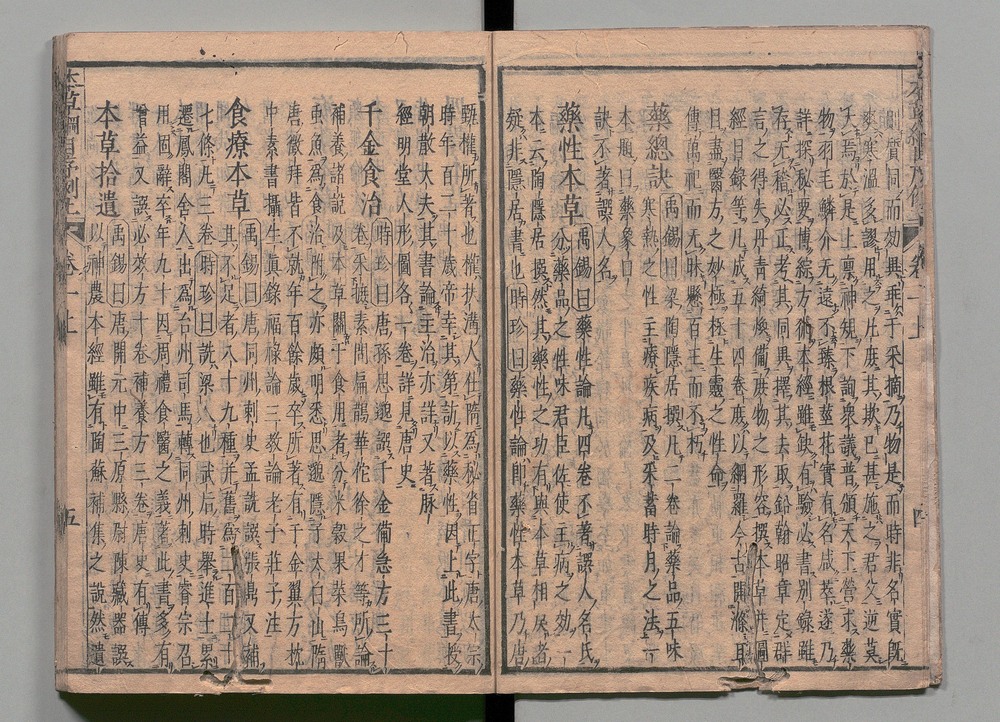 則質同而効異乖于采摘乃物是而時非名實既
爽寒溫多謬用之凡庶其欺已甚施之君父逆莫
大焉於是上稟神規下詢衆議普頒天下營求藥
物羽毛鱗介无遠不臻根莖花實有名咸萃遂乃
詳探秘要博綜方術本經雖缺有驗必書別錄雖
存无稽必正考其同異擇其去取鉛翰昭章定群
言之得失丹青綺煥備庶物之形容撰本草并圖
經目錄等凡成五十四卷庶以網羅今古開滌耳
目盡醫方之妙極拯生靈之性命
傳萬祀而无昧懸百王而不朽
藥總訣 禹錫曰梁陶隱居撰凡二卷論藥品五味
寒熱之性主療疾病及采蓄時月之法一
本題曰藥象口
訣不著譔人名
藥性本草 禹錫曰藥性論凡四卷不著譔人名氏
分藥品之性味君臣佐使主病之効一
本云陶隱居撰然其藥性之功有與本草相戾者
疑非隱居書也時珍曰藥性論即藥性本草乃唐
甄權所著也權扶溝人仕隋為秘省正字唐太宗
時年百二十歲帝幸其第訪以藥性因上此書授
朝散大夫其書論主治亦詳又著脉
經明堂人形圖各一卷詳見唐史
千金食治 時珍曰唐孫思邈譔千金備急方三十
卷采摭素問扁鵲華佗徐之才等所論
補養諸說及本草關于食用者分米穀果菜鳥獸
虫魚為食治附之亦頗明悉思邈隱于太白山隋
唐徵拜皆不就年百餘歲卒所著有千金翼方枕
中素書攝生眞錄福祿論三教論老子莊子注
食療本草 禹錫曰唐同州刺史孟詵譔張鼎又補
其不足者八十九種并舊為二百二十
七條凡三卷時珍曰詵梁人也武后時舉進士累
遷鳳閣舍人出為台州司馬轉同州刺史睿宗召
用固辭卒年九十因周禮食醫之義著此書多有
增益又譔必效方十卷補養方三卷唐史有傳
本草拾遺 禹錫曰唐開元中三原縣尉陳藏器譔
以神農本經雖有陶蘇補集之說然遺
五